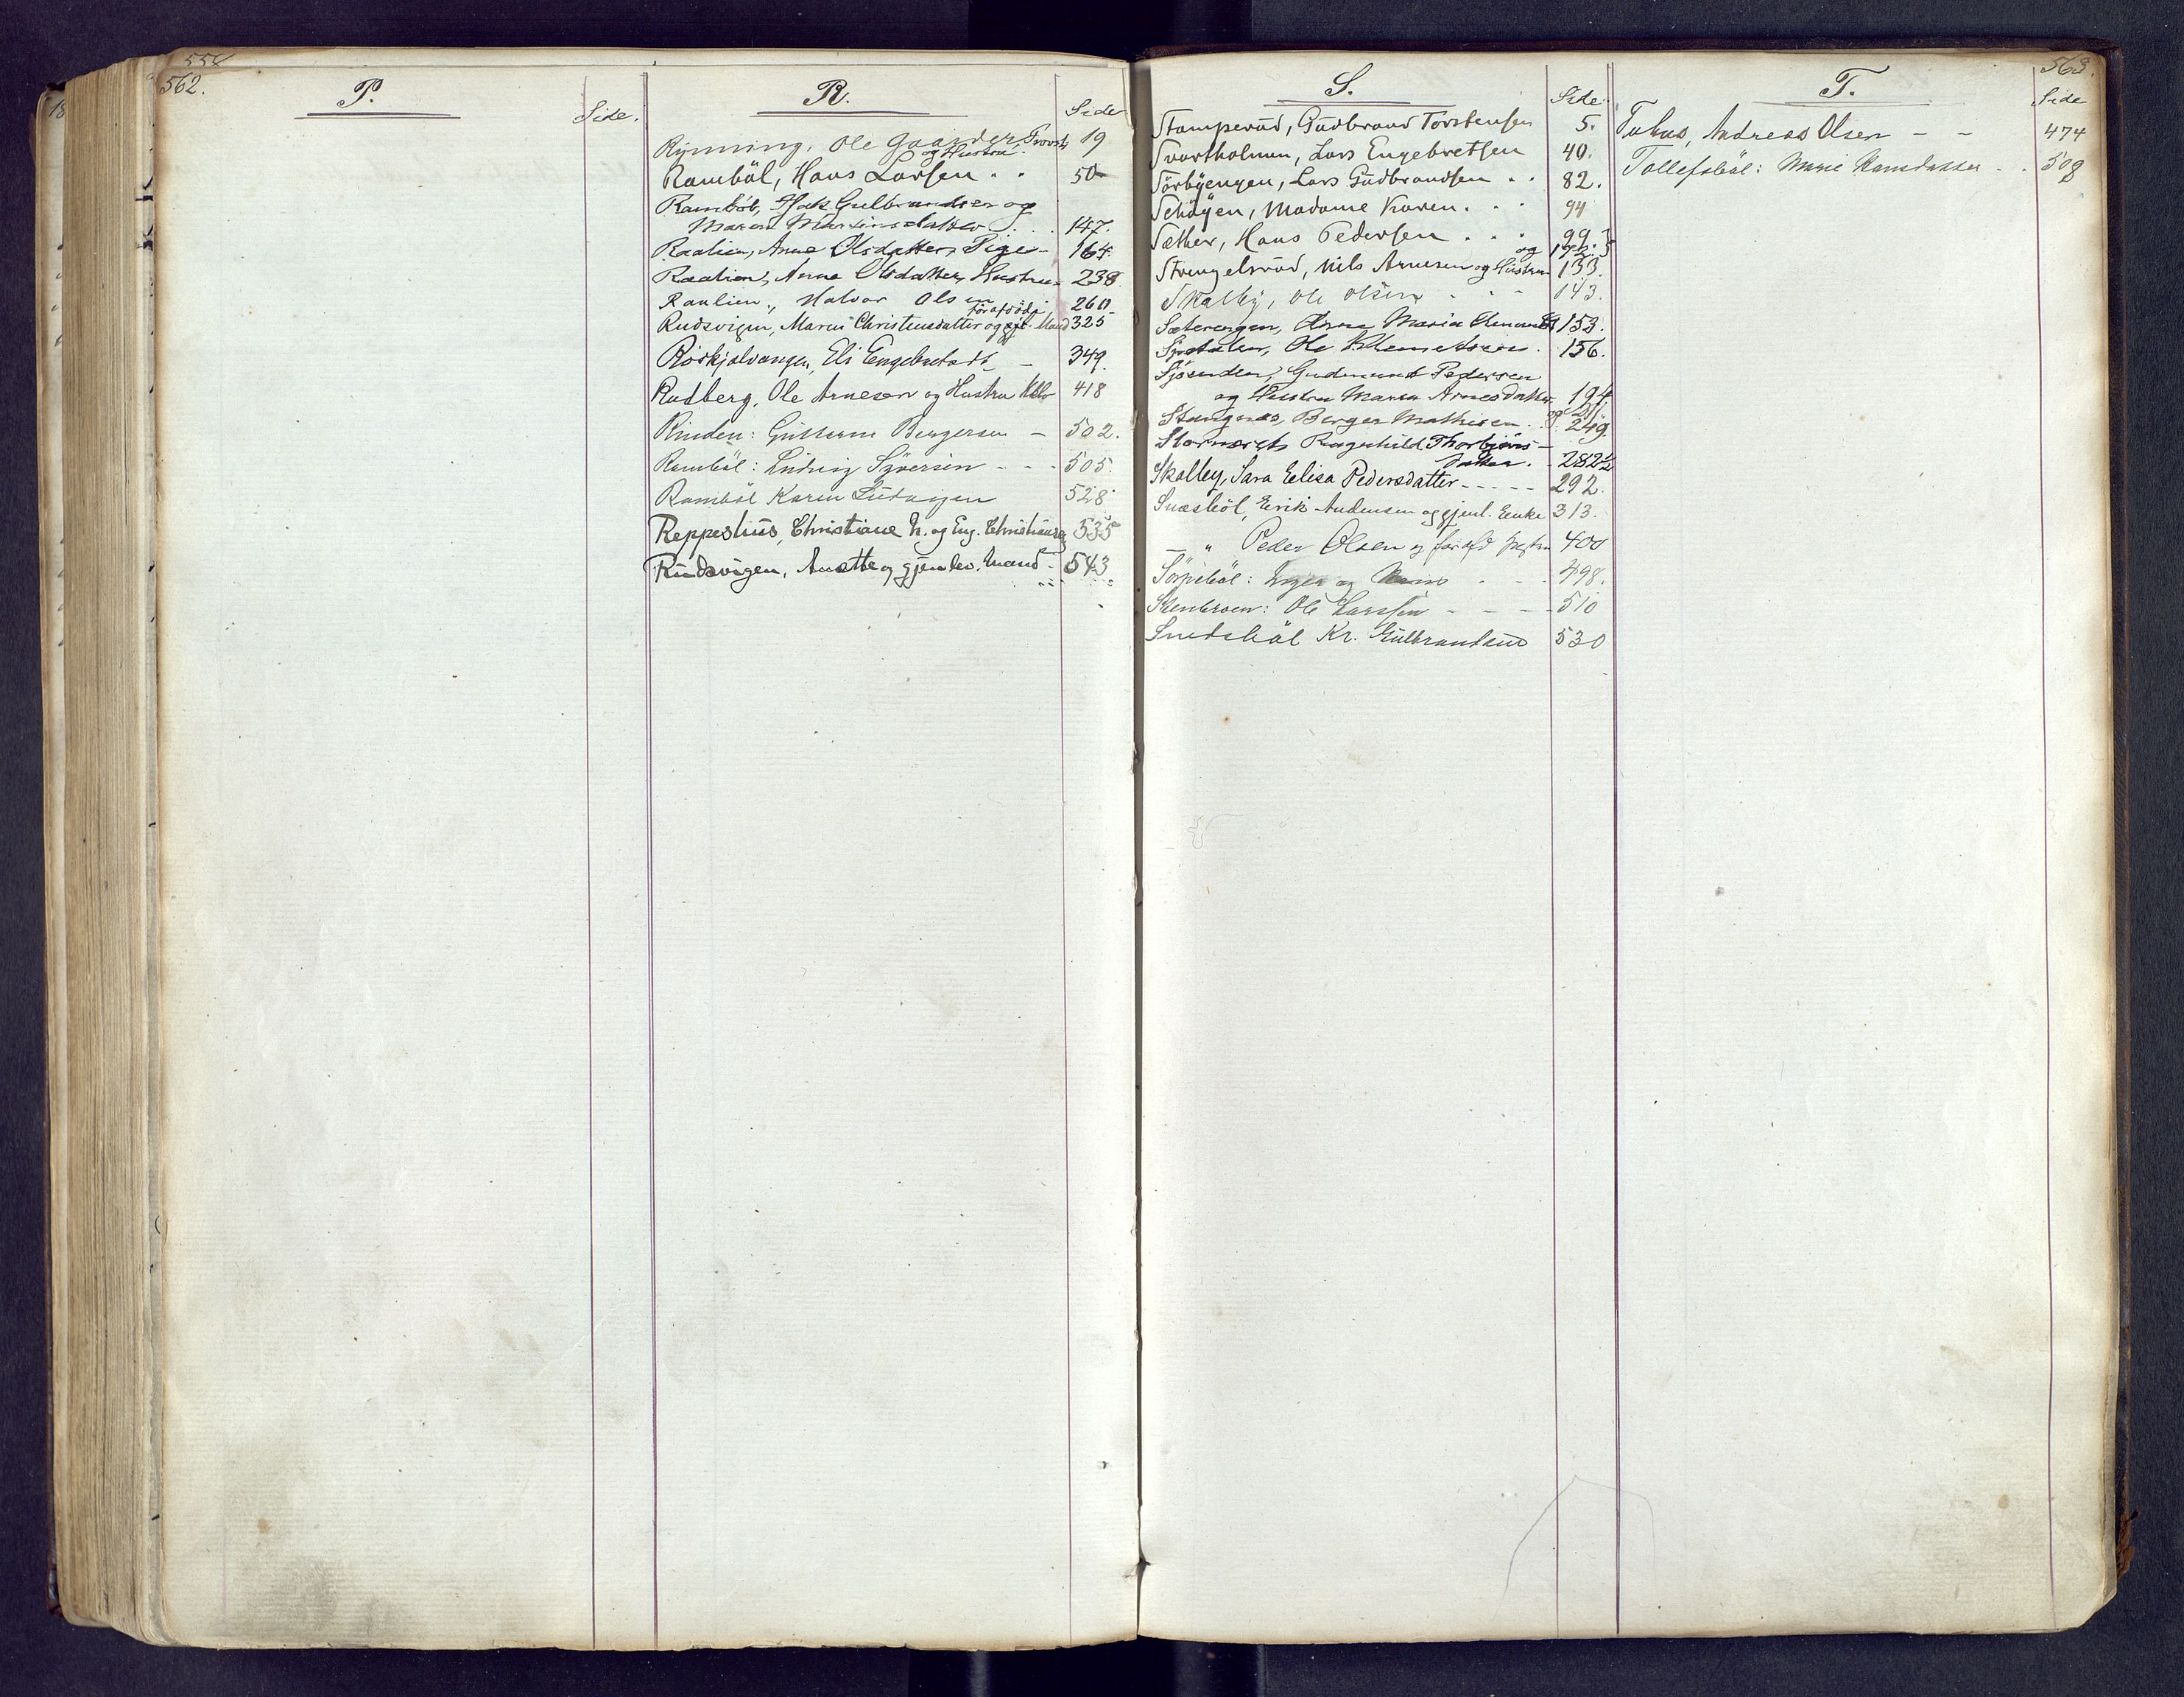 562.
P.
Side.
R.
Side
Rynning, Ole Gaarder, Provst, 19
og Hustru.
Ramböl, Hans Larsen . . 50
Ramböl, Gulbrandsen og
Maren Martinsdatter . . . 147.
Raalien, Anne Olsdatter, Pige - 164.
Raalien, Anna Olsdatter, Hustru - 238.
Raulien, Halvor Olsen 260.
forafdöde
Rudsvigen, Maren Christensdatter og Mand 325
Röskjølvangen, Eli Engebretsdt. - 349.
Rudberg, Ole Arnesen og Hustru 418
Rinden: Guttorm Bergersen - 502.
Ramböl: Ludvig Syversen - - - 505.
Ramböl Karen Ludvigsen 528
Reppeshus, Christiane h. og Eng. Christiansen 535
Rudsvigen, Anette og gjenlev. Mand - 543
S.
Side
Stamperud, Gudbrand Torstensen 5.
Svartholmen, Lars Engebretsen 40.
Sörbyengen, Lars Gudbrandsen . . 82.
Schøyen, Madame Karen. . . 94
Sæther, Hans Pedersen . . . 99.
og 172.
Strengelsrud, Nils Arnesen og Hustru 133.
Skalby, Ole Olsen . . . 143.
Sæterengen, Anne Maria 153.
Ole Klemetsen . 156.
Gudmund Pedersen
og Hustru Maren Arnesdatter. 194
Stangnæs, Berger Mathisen . . og 249.
Ragnhild Thorbjörns-
datter. - 282½
Skalby, Sara Eelisa Pedersdatter - - - - - 292.
Snæsböl, Erik Andersen og gjenl. Enke 313.
— " Peder Olsen og forafd Hustru 400
Sörpeböl: Inger og . . . 498.
Stenbroen: Ole Larssen - - - - 510
Snedsböl Kr. Gulbrandsen 530
563.
T.
Side
Andreas Olsen - - 474
Tollefsböl: Marie . . 508